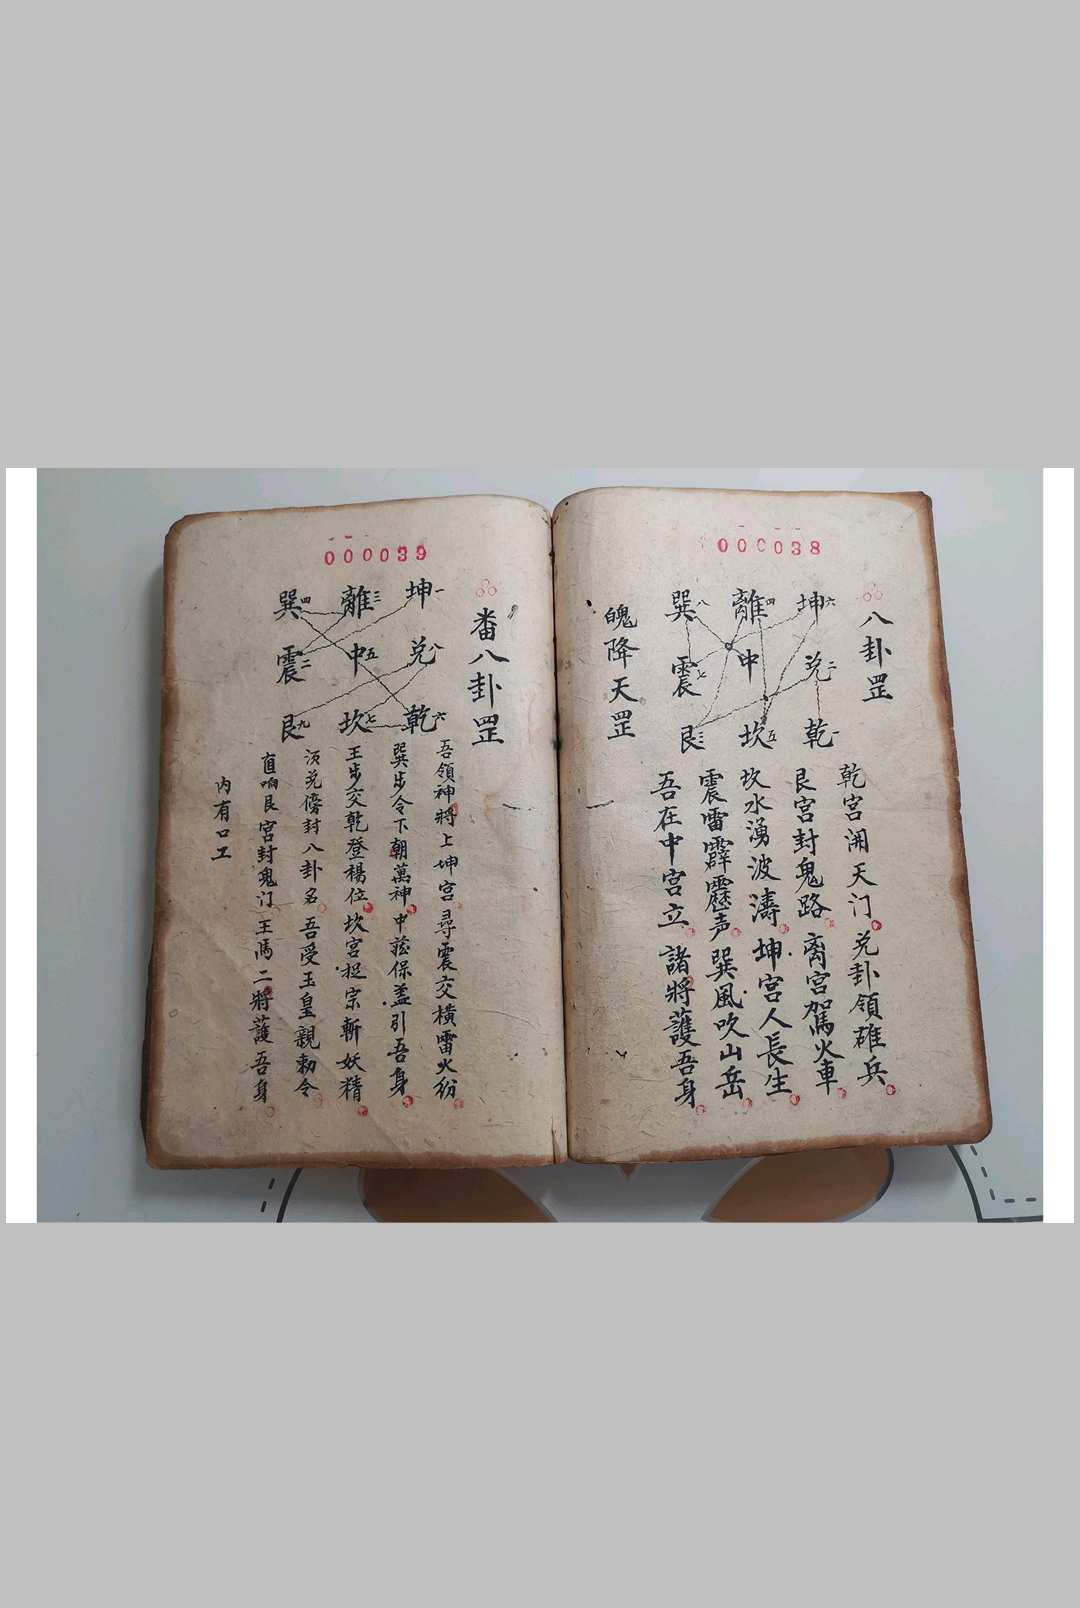 000038
八卦罡
坤六 離四 巽八
兑二 中 震七
乾一 坎五 艮三
乾宫開天门 兑卦領碓兵
艮宫封鬼路 离宫駕火車
坎水湧波濤 坤宫人長生
震雷霹靂声 巽風吹山岳
吾在中宫立 諸將護吾身
魄降天罡
000039
番八卦罡
坤一 離三 巽四
兑八 中五 震二
乾六 坎七 艮九
吾領神將上坤宫 尋震交横雷火纷
巽步令下朝萬神 中 保盖引吾身
王步交乾登楊位 坎宫捉宗斬妖精
须兑傍封八卦名 吾受玉皇親勅令
直响艮宫封鬼门 王馬二將護吾身
内有口工